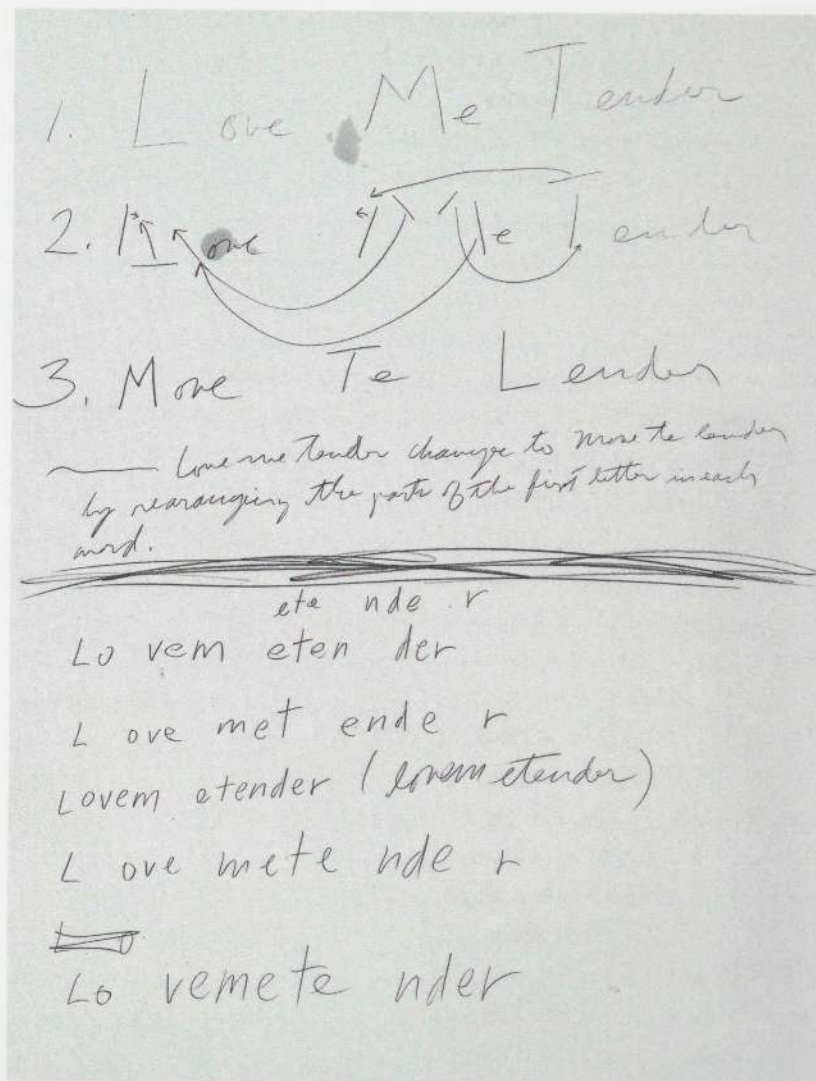 1. Love Me Tender
2. ove e ender
3. Move Te Lender
Love me Tender change to Move te lender
by rearanging the parts of the first letter in each
word.
ete nde r
Lo vem eten der
L ove met ende r
Lovem etender (lovem etender)
L ove mete nde r
Lo
Lo vemete nder